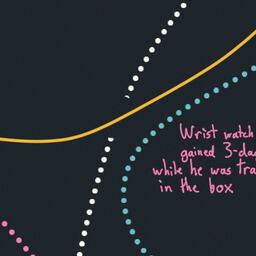 Wrist watch
gained 3-da
while he was tra
in the box